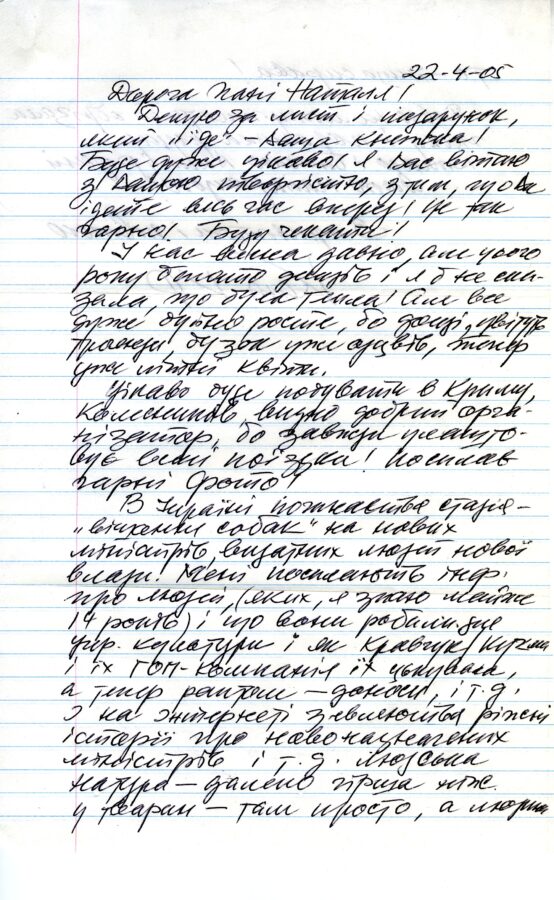 22-4-05
Дорога Пані Наталі!
Дякую за лист і подарунок,
який іде – Ваша книжка!
Буде дуже цікаво! Я Вас вітаю
з Вашою творчістю, з тим, що Ви
ідете весь час вперед! Це так
гарно! Буду чекати!
У нас весна давно, але цього
року багато дощів і я б не ска-
зала, що була тепла! Але все
дуже буйно росте, бо дощі, цвітуть
троянди, бузок уже одцвів, тепер
уже літні квіти.
Цікаво буде побувати в Криму,
Колесников, видно добрий орга-
нізатор, бо завжди
вує такі поїздки! Посилав
гарні фото!
В Україні почалася стадія –
"вішання собак" на нових
міністрів, визначних людей нової
влади! Мені посилають інф.
про людей, (яких, я знаю майже
14 років) і що вони робили для
укр. культури і як Кравчук, Кучма
і їх ГОП-компанія їх цькувала,
а тепер раптом – доноси, і т.д.
І на інтернеті з'являються ріжні
історії про новоназначених
міністрів і т.д. Людська
натура – далеко гірша ніж
у тварин – там просто, а людина